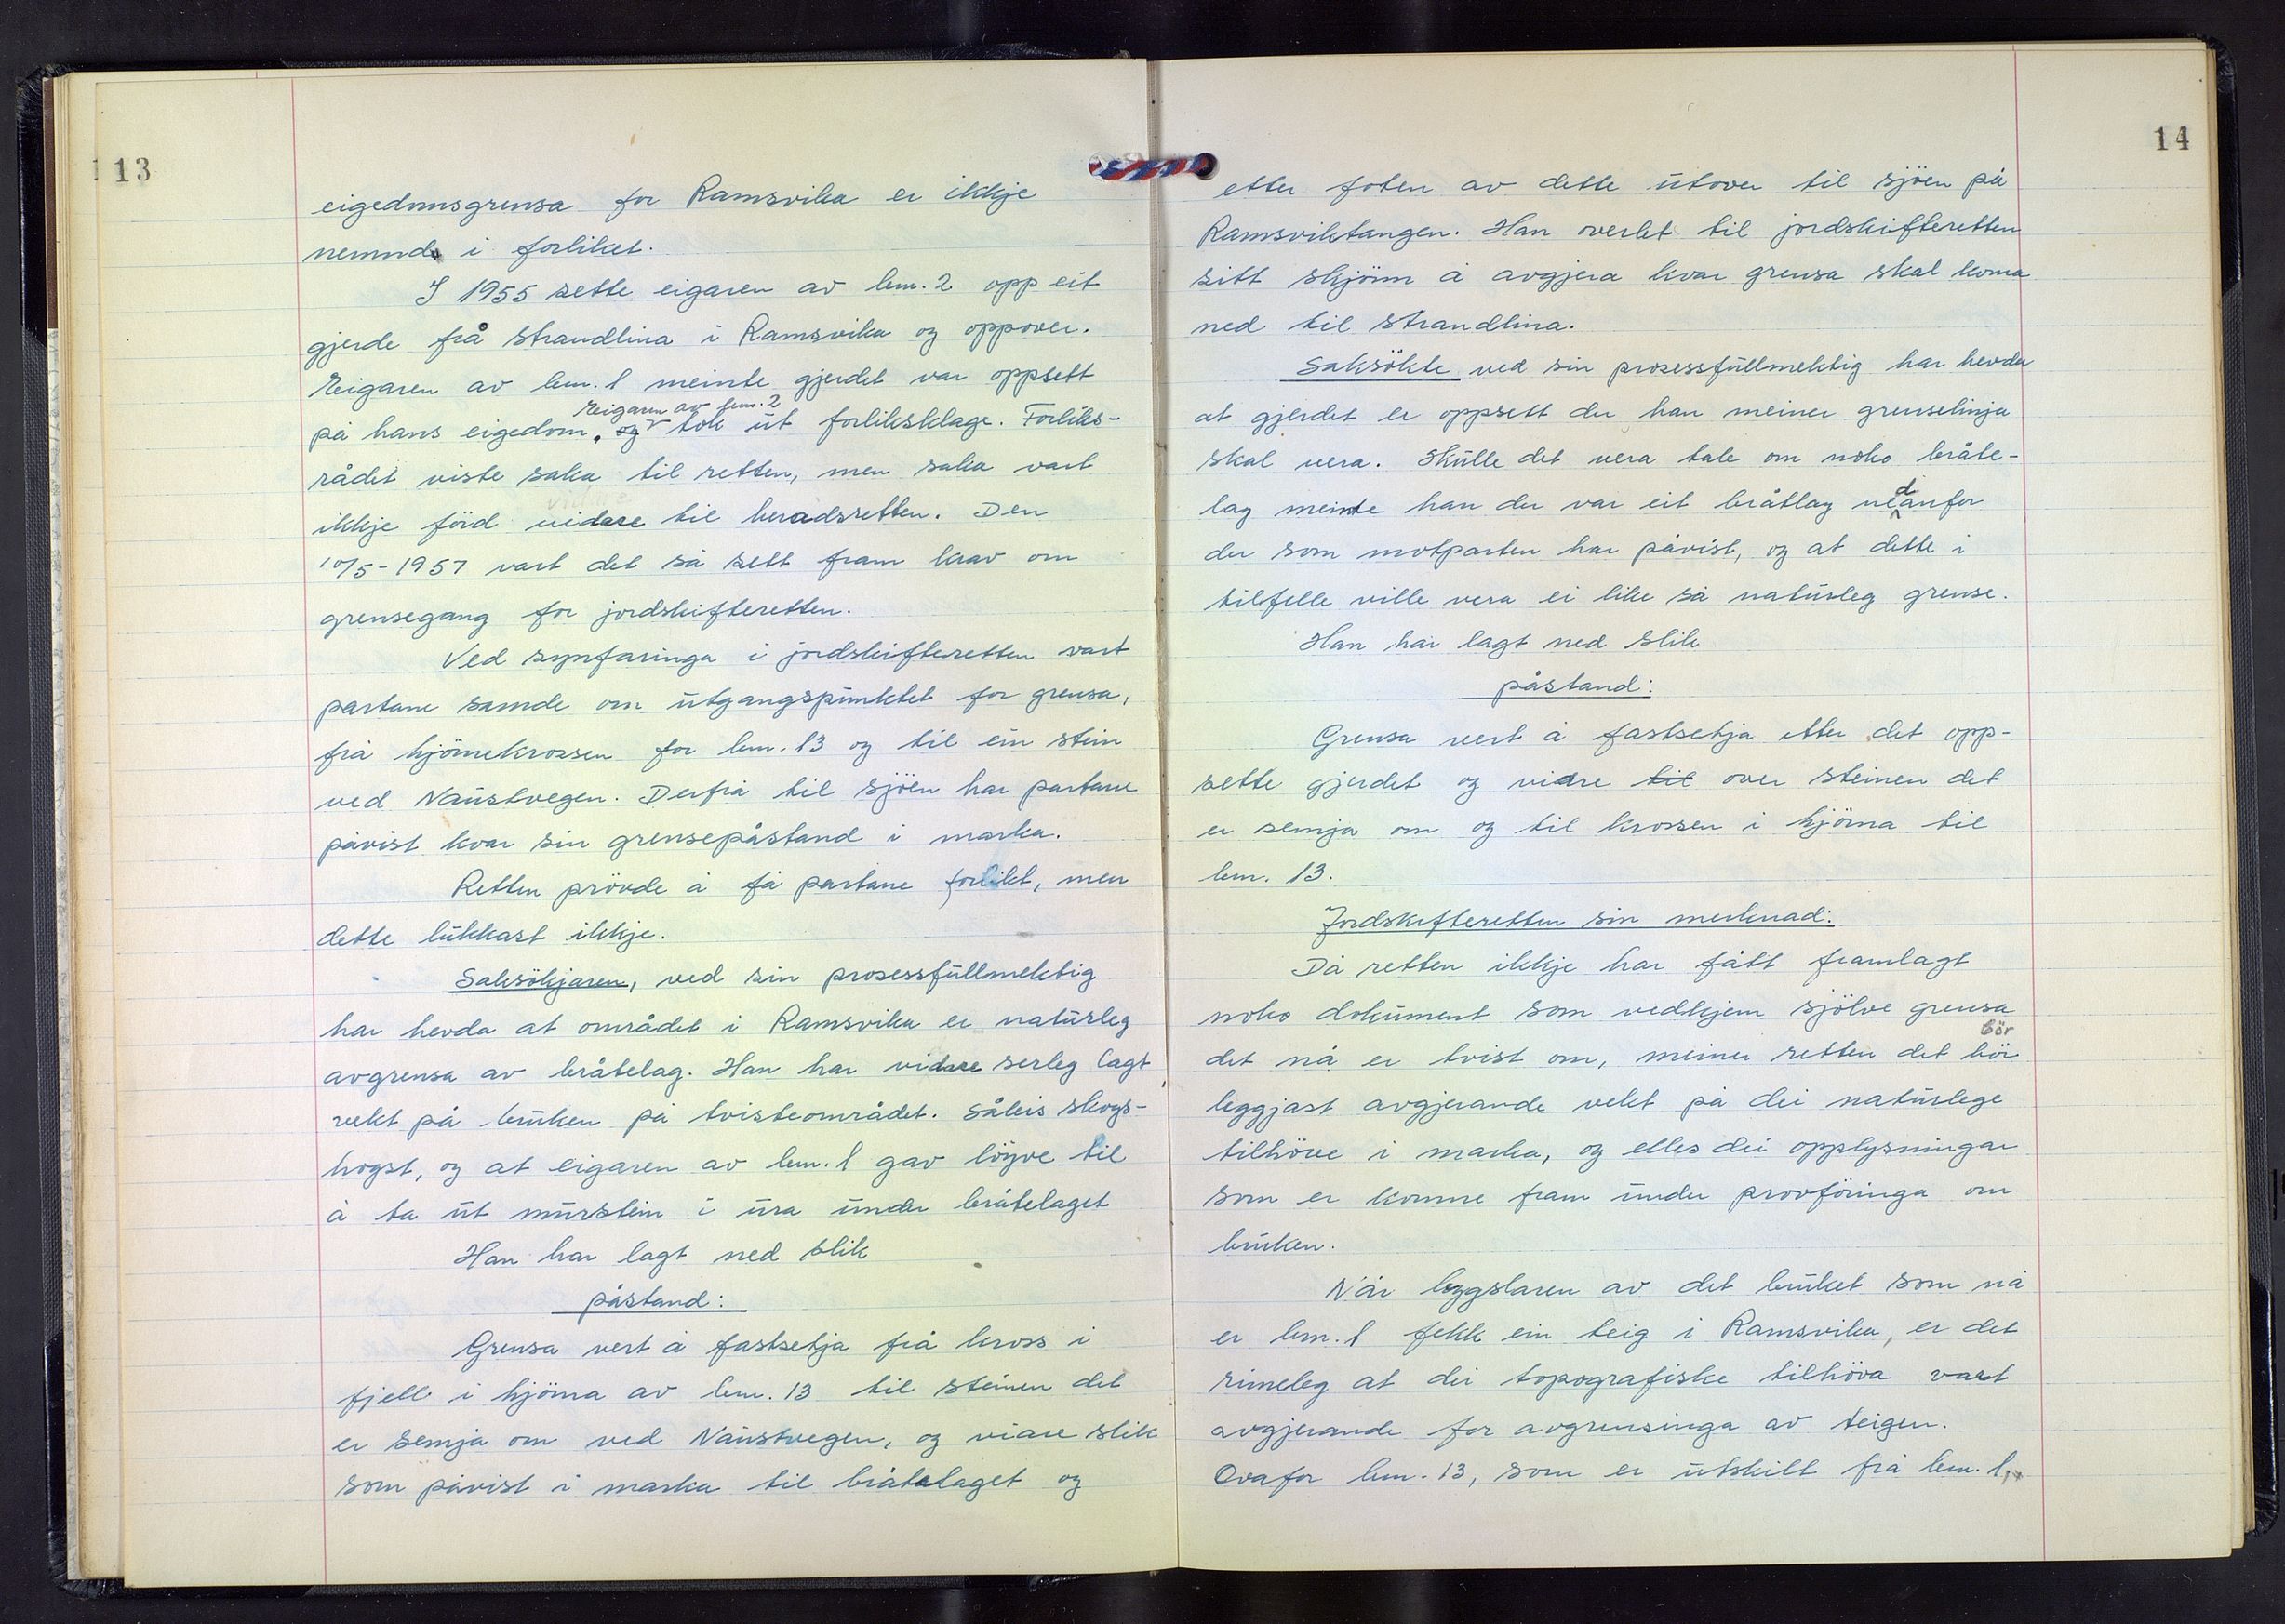 13
eigedomsgrensa for Ramsvika er ikkje
nemnd i forliket.
I 1955 sette eigaren av bm. 2 opp eit
gjerde frå strandlina i Ramsvika og oppover.
Eigaren av bm. 1 meinte gjerdet var oppsett
Eigaren av bm. 2
på hans eigedom. og tok ut forliksklage. Forliks-
rådet viste saka til retten, men saka vart
ikkje förd vidare til heradsretten. Den
10/5-1957 vart det så sett fram krav om
grensegang for jordskifteretten.
Ved synfaringa i jordskifteretten vart
partane samde om utgangspunktet for grensa,
frå hjörnekrossen for bm. 13 og til ein stein
ved Naustvegen. Derfrå til sjöen har partane
påvist kvar sin grensepåstand i marka.
Retten prövde å få partane forlikt, men
dette lukkast ikkje.
Saksökjaren, ved sin prosessfullmektig
har hevda at området i Ramsvika er naturleg
avgrensa av bråtelag. Han har vidare serleg lagt
vekt på bruken på tvisteområdet. Såleis skogs-
hogst, og at eigaren av bm. 1 gav löyve til
å ta ut murstein i ura under bråtelaget
Han har lagt ned slik
påstand:
Grensa vert å fastsetja frå kross i
fjell i hjörna av bm. 13 til steinen det
er semja om ved Naustvegen, og viare slik
som påvist i marka til bråtelaget og
14
etter foten av dette utover til sjöen på
Ramsviktangen. Han overlet til jordskifteretten
sitt skjönn å avgjera kvar grensa skal koma
ned til strandlina.
Saksökte ved sin prosessfullmektig har hevda
at gjerdet er oppsett der han meiner grenselinja
skal vera. Skulle det vera tale om noko bråte-
lag meinte han der var eit bråtlag nedanfor
der som motparten har påvist, og at dette i
tilfelle ville vera ei like så naturleg grense.
Han har lagt ned slik
påstand:
Grensa vert å fastsetja etter det opp-
sette gjerdet og vidre til over steinen det
er semja om og til krossen i hjörna til
bm. 13.
Jordskifteretten sin merknad:
Då retten ikkje har fått framlagt
noko dokument som vedkjem sjölve grensa
bör
det nå er tvist om, meiner retten det bör
leggjast avgjerande vekt på dei naturlege
tilhöve i marka, og elles dei opplysningar
som er komne fram under provföringa om
bruken.
Når bygslaren av det bruket som nå
er bm. 1 fekk ein teig i Ramsvika, er det
rimeleg at dei topografiske tilhöva vart
avgjerande for avgrensinga av teigen.
Ovafor bm. 13, som er utskilt frå bm. 1,